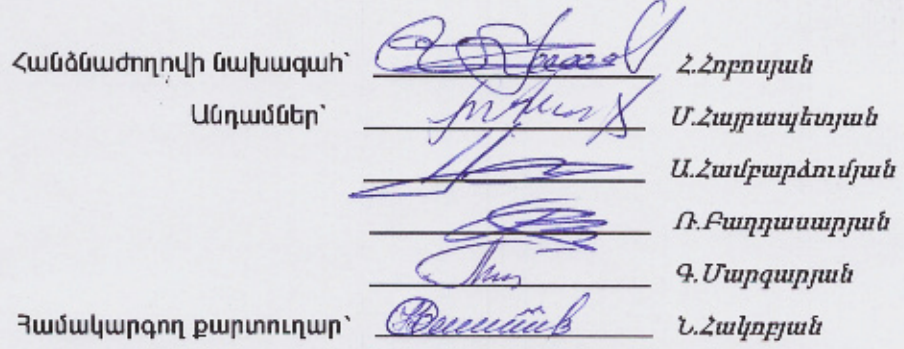 Հանձնաժողովի նախագահ՝ Հ.Հոբոսյան
Անդամներ՝ Մ.Հայրապետյան
Ա.Համբարձումյան
Ռ.Բաղդասարյան
Գ.Մարգարյան
Համակարգող քարտուղար՝ Ն.Հակոբյան